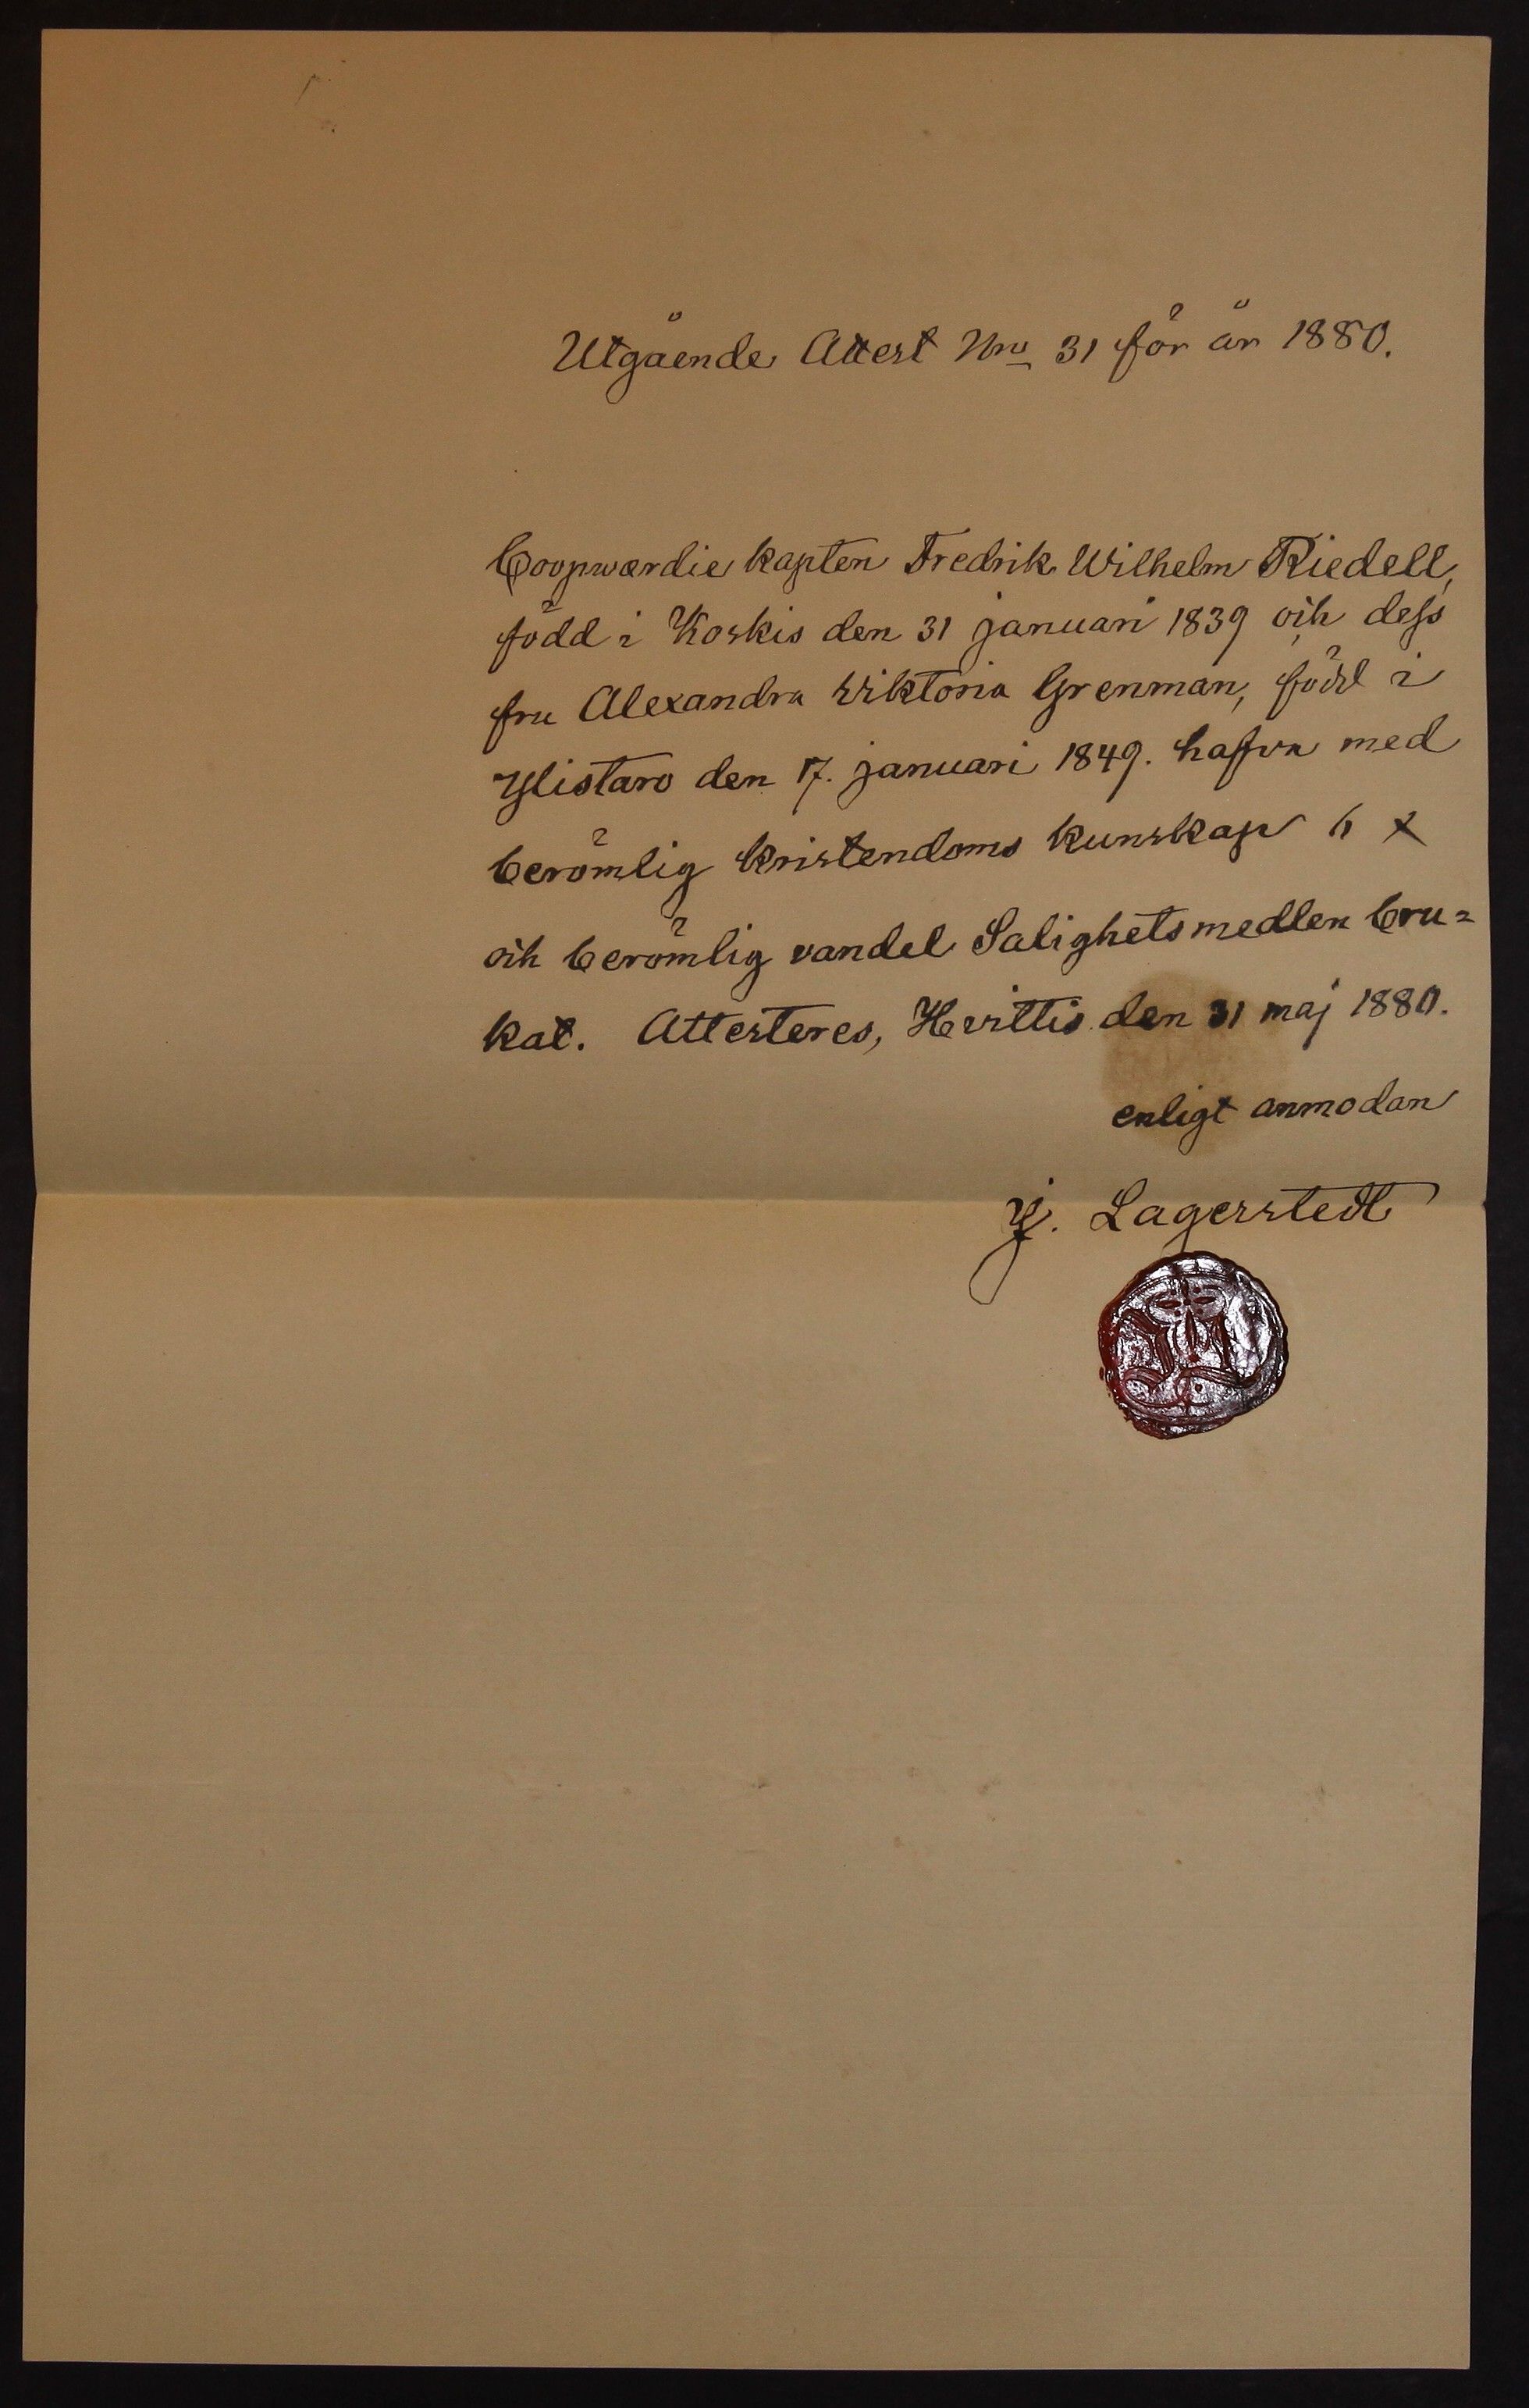 Utgående Attest Nro 31 för år 1880.
Coopwærdie kapten Fredrik Wilhelm Riedell,
född i Koskis den 31 januari 1839 och dess
fru Alexandra Wiktoria Grenman, född i
Ylistaro den 17. januari 1849. hafva med
berömlig kristendoms kunskap h x
och berömlig vandel Salighetsmedlen bru=
kat. Attesteres, Hvittis den 31 maj 1880.
enligt anmodan
J. Lagerstedt